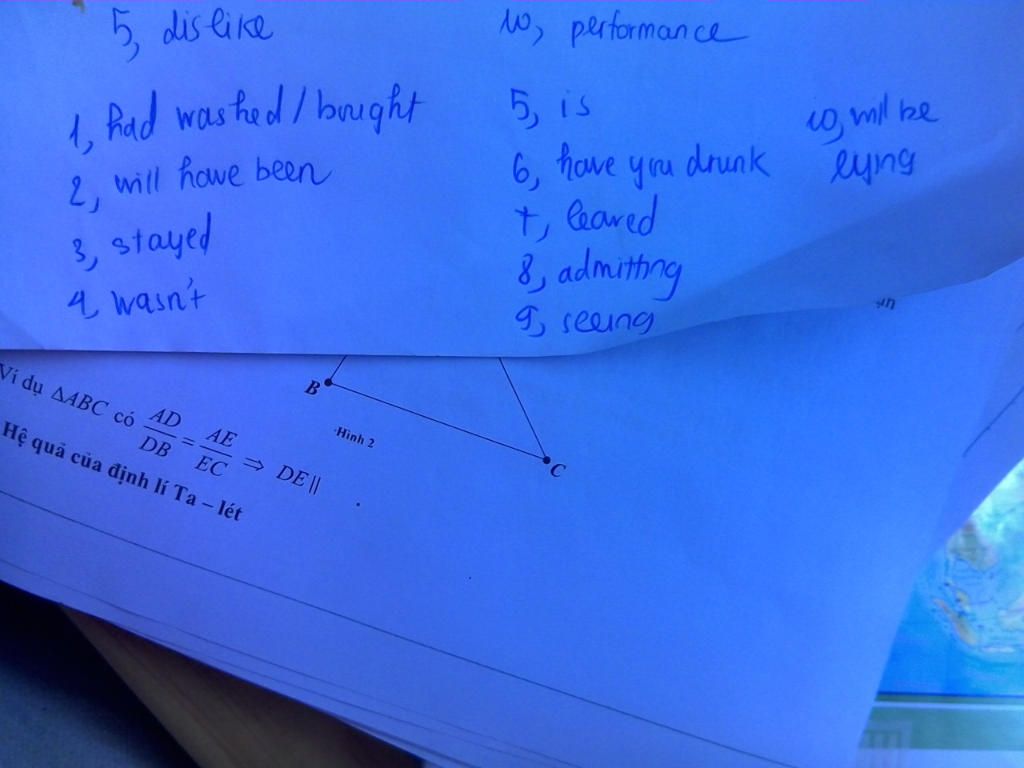 5, dislike
10, performance
1, had washed / bought
2, will have been
3, stayed
4, wasn't
5, is
6, have you drunk
7, leared
8, admitting
9, seeing
10, will be
lying
B
C
Hình 2
Ví dụ ΔABC có AD/DB = AE/EC ⇒ DE//
Hệ quả của định lí Ta – lét